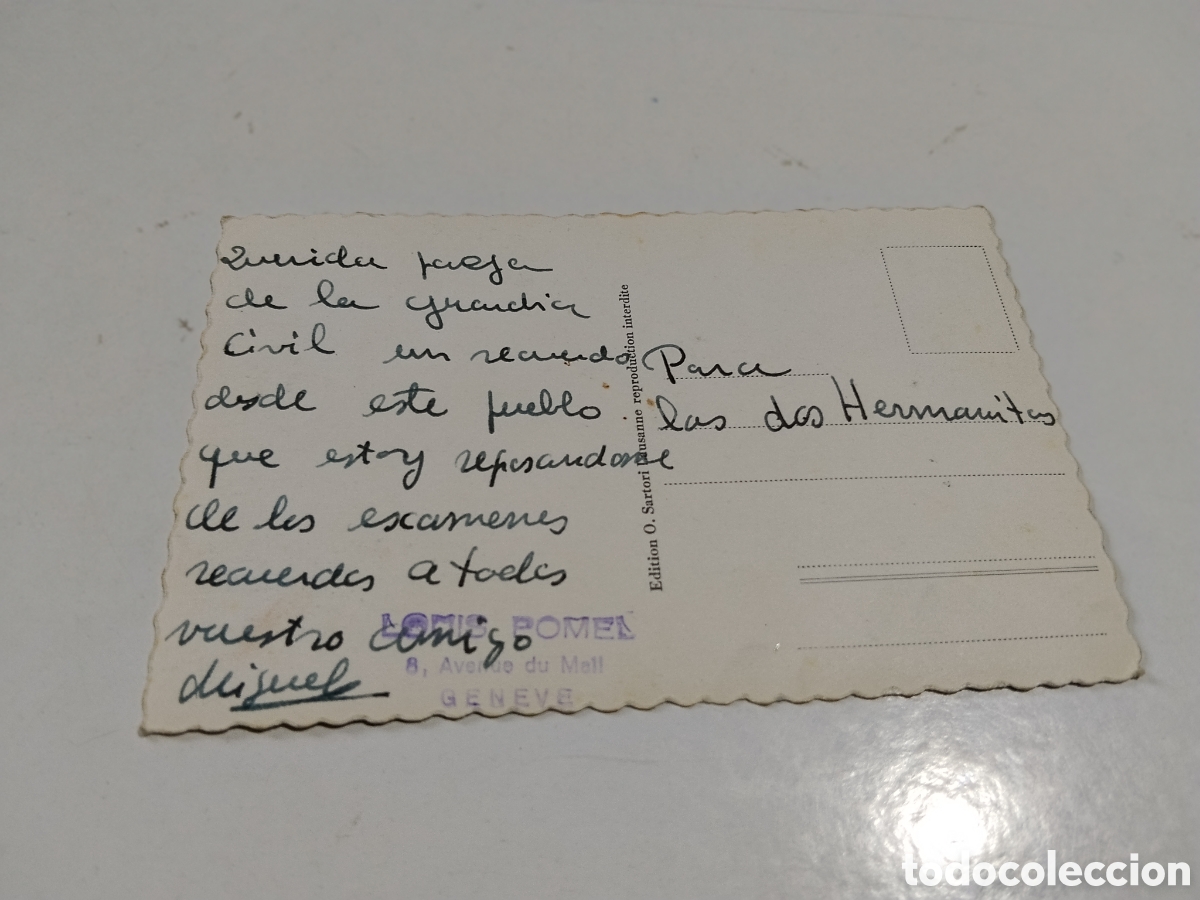 Querida pareja
de la guardia
Civil un recuerdo
desde este pueblo
que estoy reposandome
de los examenes
recuerdos a todos
vuestro amigo
Miguel
LOUIS POMEL
8, Avenue du Mail
GENEVE
Edition O. Sartori Lausanne reproduction interdite
Para
las dos Hermanitas
todocoleccion